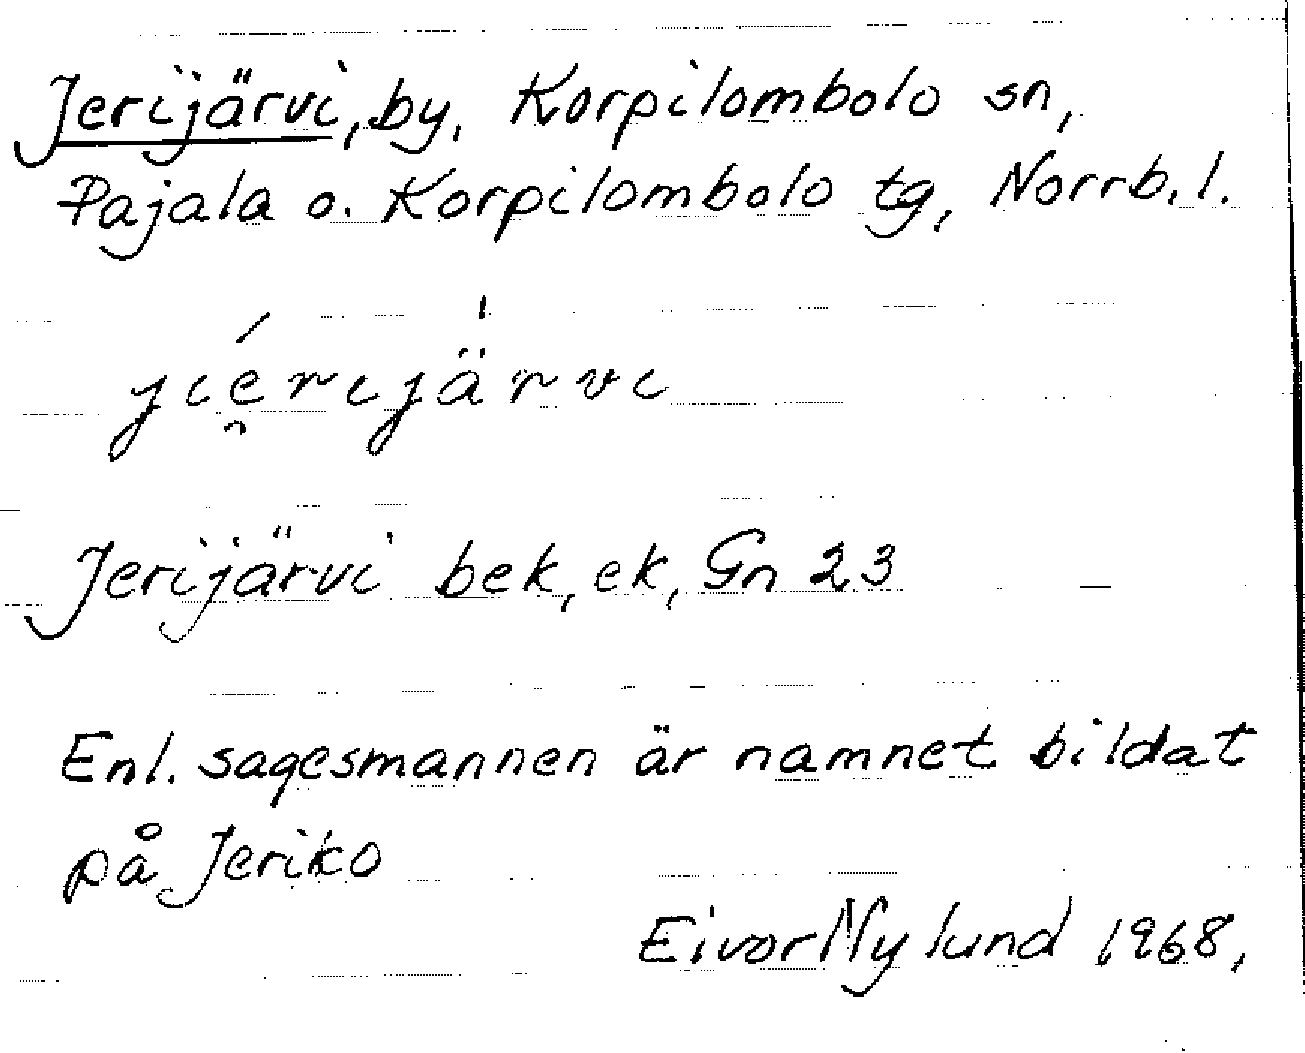 Jerijärvi, by, Korpilombolo sn,
Pajala o. Korpilombolo tg, Norrb. l.
jiẹ́rijä̍rvi
Jerijärvi bek, ek, Gn 23
Enl. sagesmannen är namnet bildat
på Jeriko
Eivor Nylund 1968,